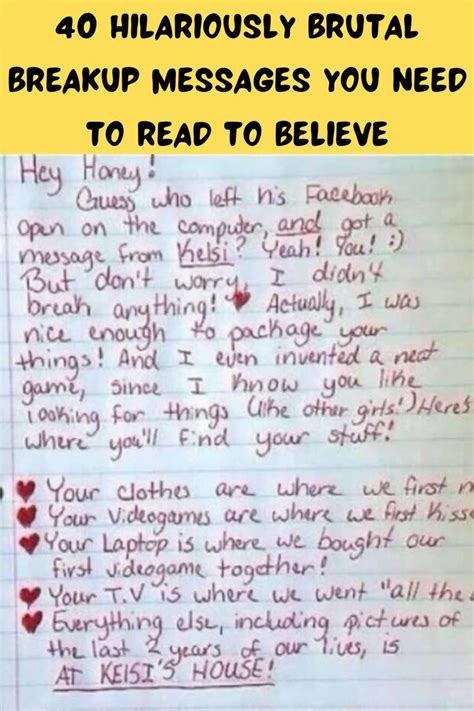 40 HILARIOUSLY BRUTAL
BREAKUP MESSAGES YOU NEED
TO READ TO BELIEVE
Hey Honey!
Guess who left his Facebook
open on the computer, and got a
message from Kelsi? Yeah! You! :)
But don't worry, I didn't
break anything! ♥ Actually, I was
nice enough to package your
things! And I even invented a neat
game, since I know you like
looking for things (like other girls!) Here's
where you'll find your stuff!
♥ Your clothes are where we first
♥ Your Videogames are where we first Kisse
♥ Your Laptop is where we bought our
first videogame together!
♥ Your T.V is where we went "all the
♥ Everything else, including pictures of
the last 2 years of our lives, is
AT KElSI'S HOUSE!